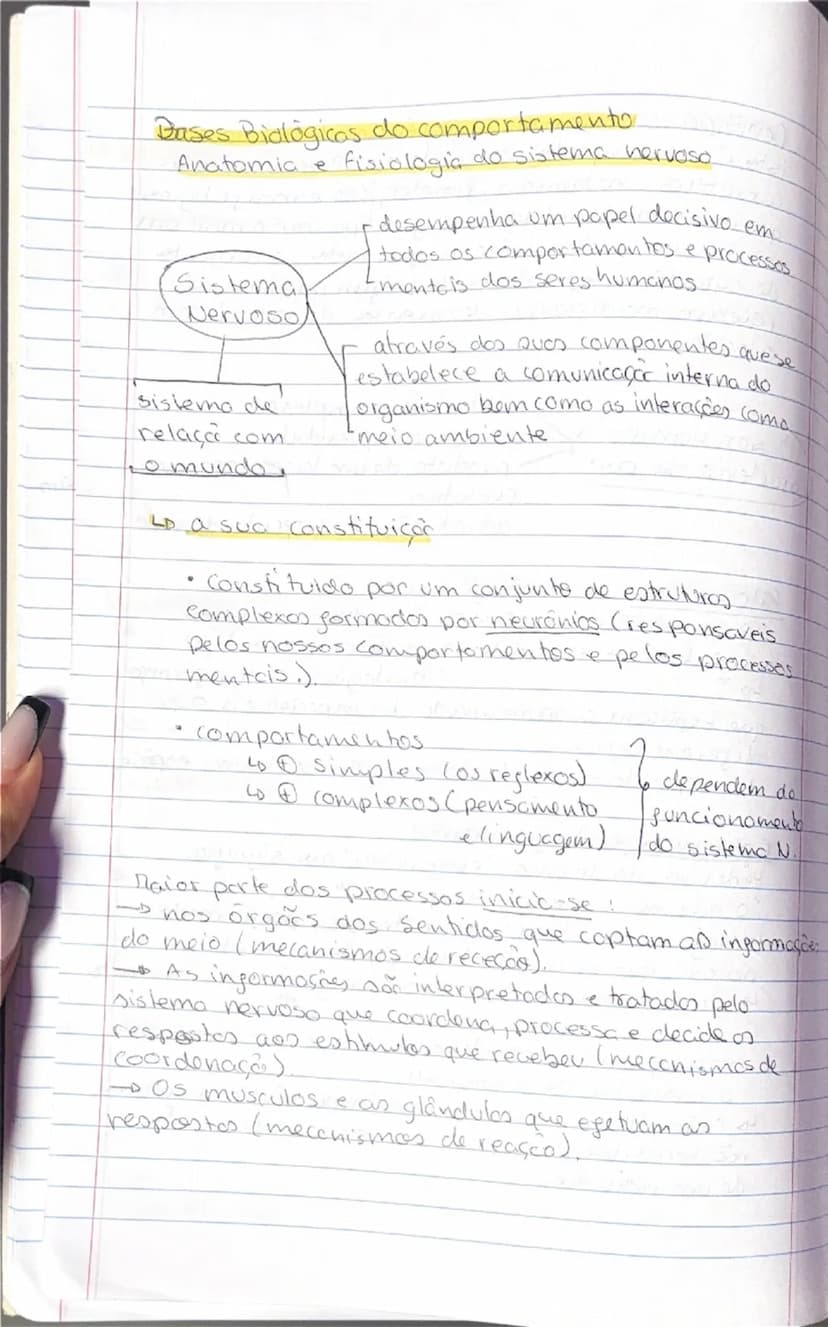 Bases Biológicas do comportamento
Anatomia e fisiologia do sistema nervoso
desempenha um papel decisivo em
todos os comportamentos e processos
mentais dos seres humanos
Sistema
Nervoso
através dos suas componentes que se
estabelece a comunicação interna do
organismo bem como as interações com o
meio ambiente
sistema de
relação com
o mundo.
↳ a sua constituição
• Constituido por um conjunto de estruturas
complexas formadas por neurónios (responsaveis
pelos nossos comportamentos e pelos processos
mentais.).
• comportamentos
↳ ⊕ simples (os reflexos)
↳ ⊕ complexos (pensamento
e linguagem)
dependem do
funcionamento
do sistema N.
Maior parte dos processos inicia-se:
→ nos órgãos dos sentidos que captam as informações
do meio (mecanismos de receção).
→ As informações são interpretadas e tratadas pelo
sistema nervoso que coordena, processa e decide as
respostas aos estímulos que recebeu (mecanismos de
coordenação)
→ Os musculos e as glândulas que efetuam as
respostas (mecanismos de reação).